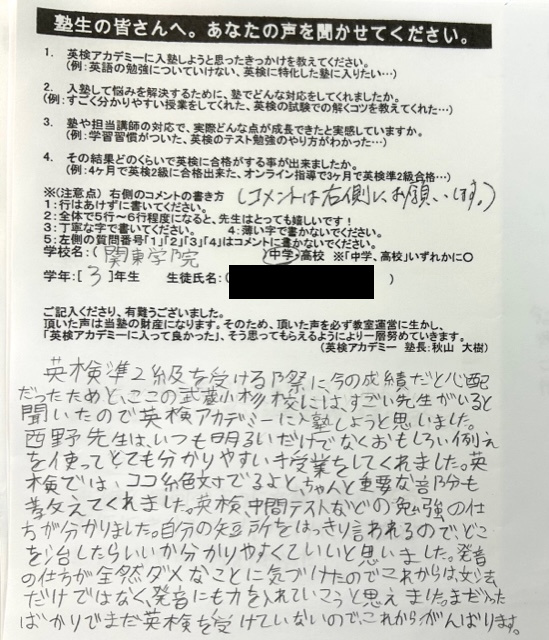 塾生の皆さんへ。あなたの声を聞かせてください。
1. 英検アカデミーに入塾しようと思ったきっかけを教えてください。
(例：英語の勉強についていけない、英検に特化した塾に入りたい…)
2. 入塾して悩みを解決するために、塾でどんな対応をしてくれましたか。
(例：すごく分かりやすい授業をしてくれた、英検の試験での解くコツを教えてくれた…)
3. 塾や担当講師の対応で、実際どんな点が成長できたと実感していますか。
(例：学習習慣がついた、英検のテスト勉強のやり方がわかった…)
4. その結果どのくらいで英検に合格がする事が出来ましたか。
(例：4ヶ月で英検2級に合格出来た、オンライン指導で3ヶ月で英検準2級合格…)
※(注意点) 右側のコメントの書き方 (コメントは右側に、お願いします。)
1：行はあけずに書いてください。
2：全体で5行～6行程度になると、先生はとっても嬉しいです！
3：丁寧な字で書いてください。 4：薄い字で書かないでください。
5：左側の質問番号「1」「2」「3」「4」はコメントに書かないでください。
学校名：( 関東学院 )中学・高校 ※「中学、高校」いずれかに○
学年：[ 3 ]年生 生徒氏名：( )
ご記入くださり、有難うございました。
頂いた声は当塾の財産になります。そのため、頂いた声を必ず教室運営に生かし、
「英検アカデミーに入って良かった」、そう思ってもらえるようにより一層努めていきます。
(英検アカデミー 塾長：秋山 大樹)
英検準2級を受ける際に今の成績だと心配
だったためと、ここの武蔵小杉校には、すごい先生がいると
聞いたので英検アカデミーに入塾しようと思いました。
西野先生は、いつも明るいだけでなくおもしろい例え
を使ってとても分かりやすい授業をしてくれました。英
検では、ココ絶対でるよと、ちゃんと重要な部分も
教えてくれました。英検、中間テストなどの勉強の仕
方が分かりました。自分の短所をはっきり言われるので、どこ
を治したらいいか分かりやすくていいと思いました。発音
の仕方が全然ダメなことに気づけたのでこれからは、文法
だけではなく、発音にも力を入れていこうと思えました。まだ入った
ばかりでまだ英検を受けていないので、これからがんばります。